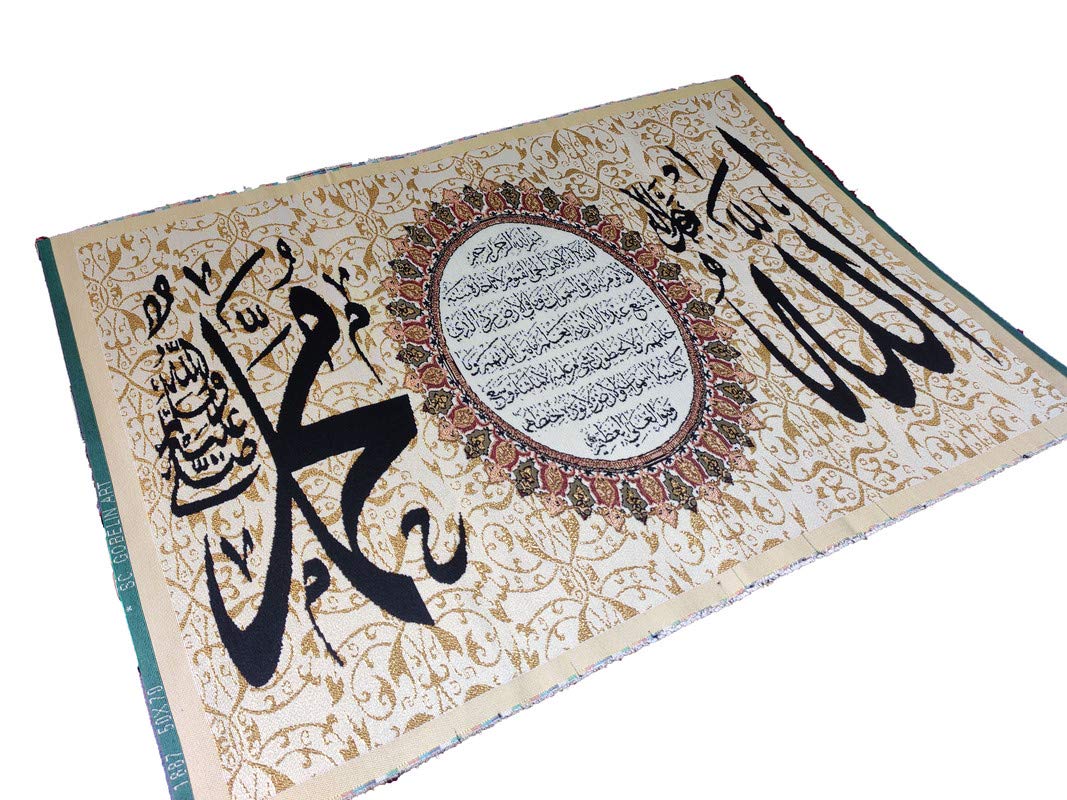 الله
جل جلاله
بسم الله الرحمن الرحيم
الله لا اله الا هو الحي القيوم لا تأخذه سنة
ولا نوم له ما في السموات وما في الارض من ذا الذي
يشفع عنده الا باذنه يعلم ما بين ايديهم وما
خلفهم ولا يحيطون بشيء من علمه الا بما شاء وسع
كرسيه السموات والارض ولا يؤده حفظهما
وهو العلي العظيم
محمد
صلى الله عليه وسلم
1887 50X70 * SC GOBELIN ART